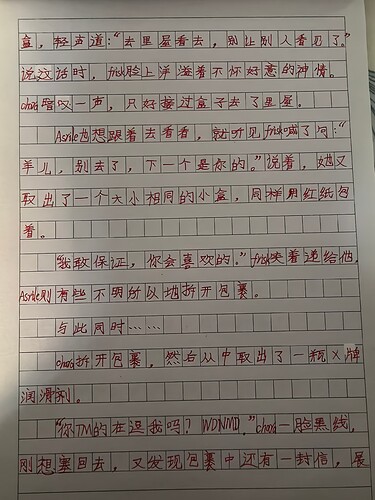 盒，轻声道：“去里屋看去，别让别人看见了。”
说这话时，frisk脸上洋溢着不怀好意的神情。
chara暗叹一声，只好接过盒子去了里屋。
Asriel也想跟着去看看，就听见frisk喊了句：“
羊儿，别去了，下一个是你的。”说着，她又
取出了一个大小相同的小盒，同样用红纸包
着。
“我敢保证，你会喜欢的。”frisk笑着递给他，
Asriel则有些不明所以地拆开包裹。
与此同时……
chara拆开包裹，然后从中取出了一瓶X牌
润滑剂。
“你TM的在逗我吗？WDNMD。”chara一脸黑线，
刚想塞回去，又发现包裹中还有一封信，展